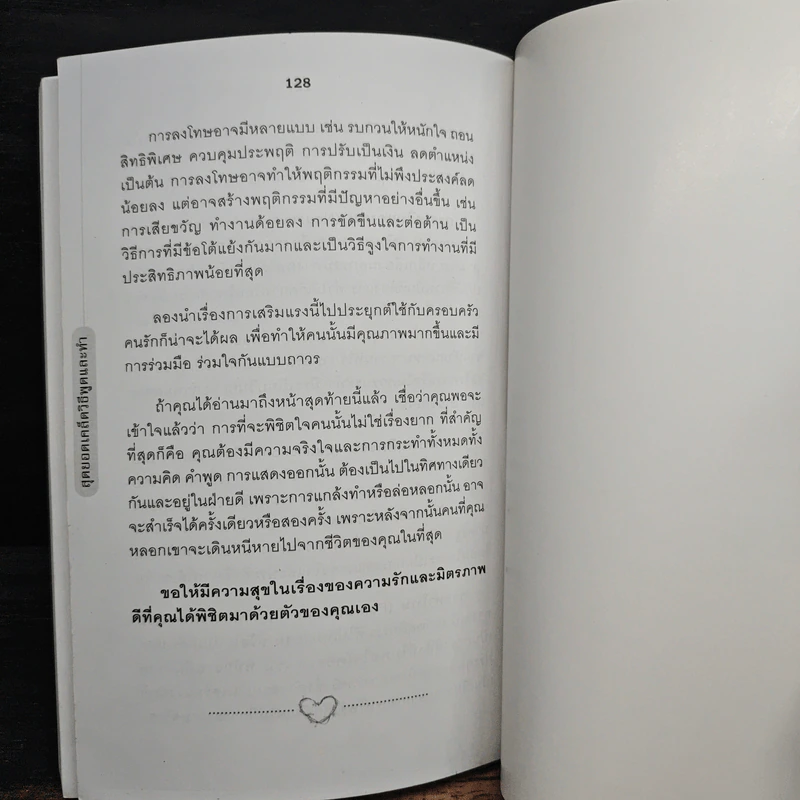 128
การลงโทษอาจมีหลายแบบ เช่น รบกวนให้หนักใจ ถอน
สิทธิพิเศษ ควบคุมประพฤติ การปรับเป็นเงิน ลดตำแหน่ง
เป็นต้น การลงโทษอาจทำให้พฤติกรรมที่ไม่พึงประสงค์ลด
น้อยลง แต่อาจสร้างพฤติกรรมที่มีปัญหาอย่างอื่นขึ้น เช่น
การเสียขวัญ ทำงานด้อยลง การขัดขืนและต่อต้าน เป็น
วิธีการที่มีข้อโต้แย้งกันมากและเป็นวิธีจูงใจการทำงานที่มี
ประสิทธิภาพน้อยที่สุด
ลองนำเรื่องการเสริมแรงนี้ไปประยุกต์ใช้กับครอบครัว
คนรักก็น่าจะได้ผล เพื่อทำให้คนนั้นมีคุณภาพมากขึ้นและมี
การร่วมมือ ร่วมใจกันแบบถาวร
ถ้าคุณได้อ่านมาถึงหน้าสุดท้ายนี้แล้ว เชื่อว่าคุณพอจะ
เข้าใจแล้วว่า การที่จะพิชิตใจคนนั้นไม่ใช่เรื่องยาก ที่สำคัญ
ที่สุดก็คือ คุณต้องมีความจริงใจและการกระทำทั้งหมดทั้ง
ความคิด คำพูด การแสดงออกนั้น ต้องเป็นไปในทิศทางเดียว
กันและอยู่ในฝ่ายดี เพราะการแกล้งทำหรือล่อหลอกนั้น อาจ
จะสำเร็จได้ครั้งเดียวหรือสองครั้ง เพราะหลังจากนั้นคนที่คุณ
หลอกเขาจะเดินหนีหายไปจากชีวิตของคุณในที่สุด
ขอให้มีความสุขในเรื่องของความรักและมิตรภาพ
ดีที่คุณได้พิชิตมาด้วยตัวของคุณเอง
สุดยอดเคล็ดวิธีพูดและทำ